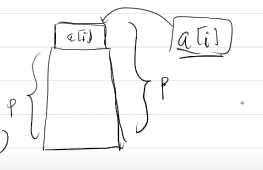 a[i]
a[i]
P
P